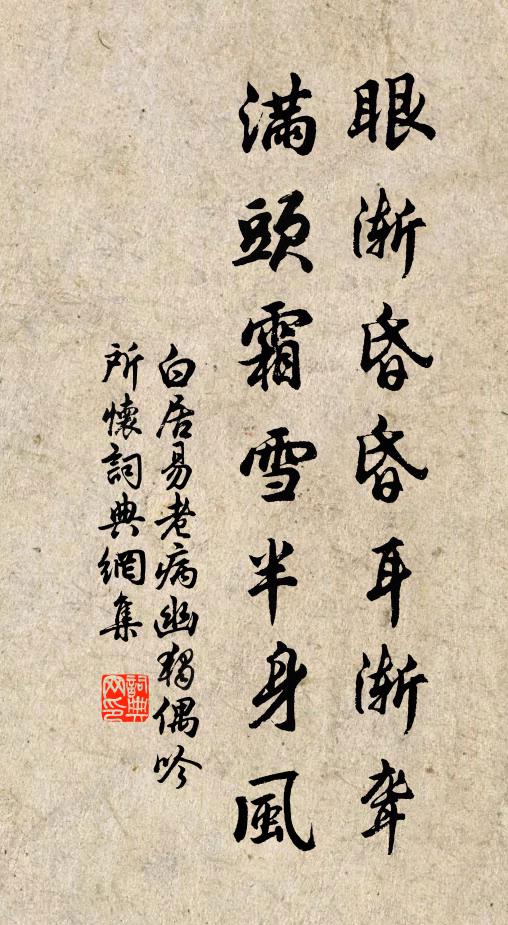 眼漸昏昏耳漸聾
滿頭霜雪半身風
白居易老病幽獨偶吟
所懷詞典網集
詞典
网印